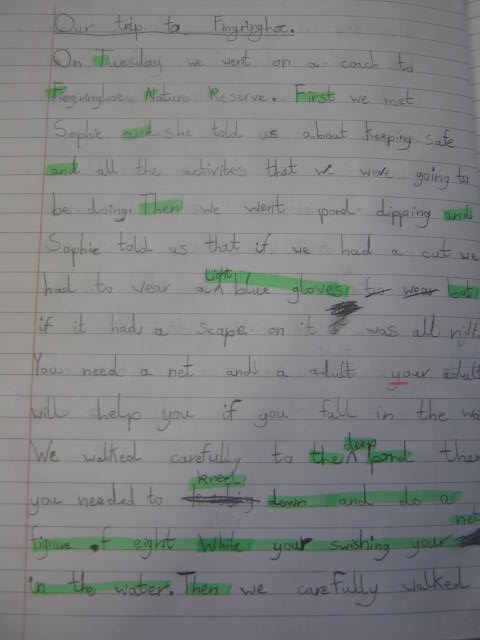 Our trip to Fingringhoe.
On Tuesday we went on a coach to
Fiegringhoe Nature Reserve. First we met
Sophie and she told us about keeping safe
and all the activites that we were going to
be doing. Then we went pond dipping and
Sophie told us that if we had a cut we
had to wear a light blue gloves to wear but
if it had a scape on it was all
You need a net and a adult your adult
will help you if you fall in the
We walked carefully to the deep pond then
you needed to kneel down and do a
figrue of eight While your swishing your net
in the water. Then we carefully walked